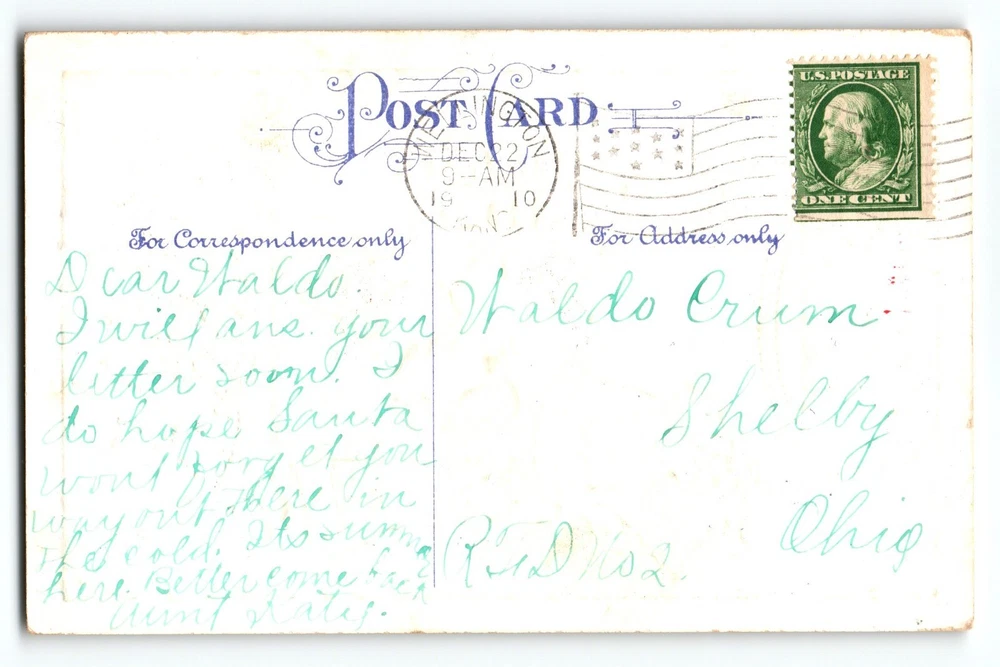 POST CARD
U.S. POSTAGE
ONE CENT
DEC 22
9-AM
19 10
For Correspondence only
For Address only
Dear Waldo.
I will ans. your
letter soon. I
do hope Santa
wont forget you
way out there in
the cold. Its summer
here. Better come back
Aunt Katy.
Waldo Crum
Shelby
Ohio
R.F.D No 2